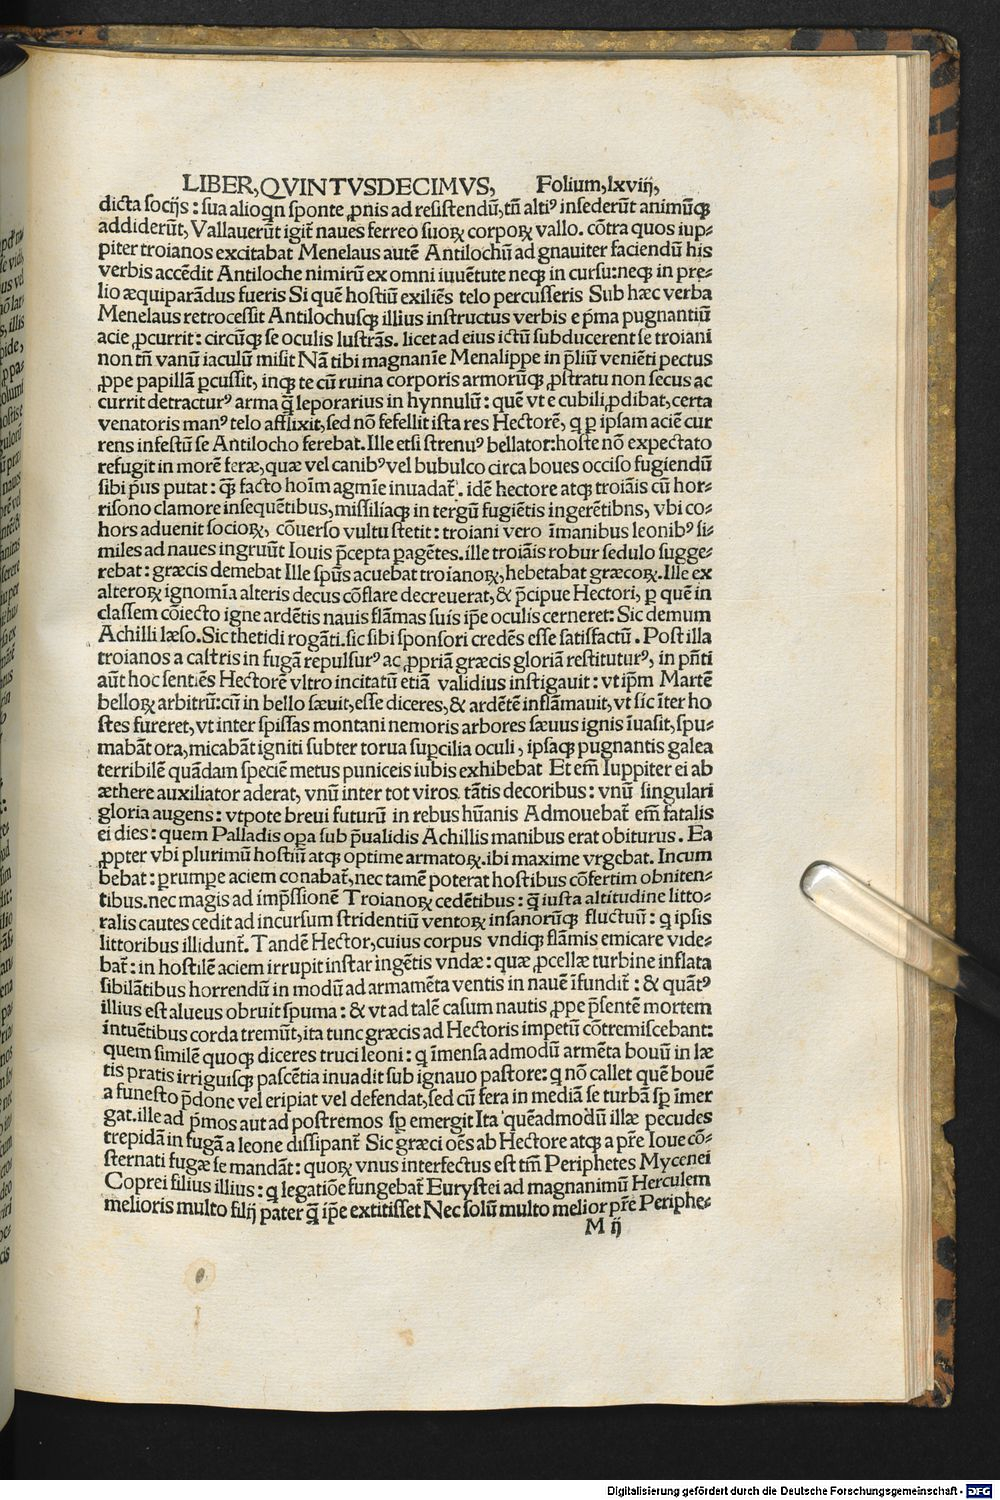 LIBER,QVINTVSDECIMVS, Folium,lxviij,
dicta socijs : sua alioqn sponte ꝓnis ad resistendū, tñ altiꝰ insederūt animūqꝫ
addiderūt, Vallauerūt igit̃ naues ferreo suoꝝ corpoꝝ vallo. cōtra quos iup⸗
piter troianos excitabat Menelaus autē Antilochū ad gnauiter faciendū his
verbis accēdit Antiloche nimirū ex omni iuuētute neqꝫ in cursu: neqꝫ in pre⸗
lio æquiparādus fueris Si quē hostiū exiliēs telo percusseris Sub hæc verba
Menelaus retrocessit Antilochusqꝫ illius instructus verbis e p̄ma pugnantiū
acie ꝓcurrit: circūqꝫ se oculis lustrās. licet ad eius ictū subducerent se troiani
non tñ vanū iaculū misit Nā tibi magnanīe Menalippe in p̄liū veniēti pectus
ꝓpe papillā ꝑcussit, inqꝫ te cū ruina corporis armorūqꝫ ꝓstratu non secus ac
currit detracturꝰ arma q̄ leporarius in hynnulū : quē vt e cubili ꝓdibat, certa
venatoris manꝰ telo afflixit, sed nō fefellit ista res Hectorē, q ꝑ ipsam aciē cur
rens infestū se Antilocho ferebat. Ille etsi strenuꝰ bellator: hoste nō expectato
refugit in morē feræ, quæ vel canibꝰ vel bubulco circa boues occiso fugiendū
sibi p̄us putat : qꝫ̄ facto hoīm agmīe inuadat̃. idē hectore atqꝫ troiāis cū hor⸗
risono clamore insequētibus, missiliaqꝫ in tergū fugiētis ingerētibns, vbi co⸗
hors aduenit socioꝝ, cōuerso vultu stetit : troiani vero īmanibus leonibꝰ si⸗
miles ad naues ingruūt Iouis p̄cepta ꝑagētes. ille troiāis robur sedulo sugge⸗
rebat : græcis demebat Ille spūs acuebat troianoꝝ, hebetabat græcoꝝ. Ille ex
alteroꝝ ignomīa alteris decus cōflare decreuerat, & p̄cipue Hectori, ꝑ quē in
classem cōiecto igne ardētis nauis flāmas suis ip̄e oculis cerneret: Sic demum
Achilli læso. Sic thetidi rogāti. sic sibi sponsori credēs esse satisfactū . Post illa
troianos a castris in fugā repulsurꝰ ac ꝓpriā græcis gloriā restituturꝰ, in pñti
aūt hoc sentiēs Hectorē vltro incitatū etiā validius instigauit : vt ip̄m Martē
belloꝝ arbitrū: cū in bello sæuit, esse diceres, & ardētē inflāmauit, vt sic īter ho
stes fureret, vt inter spissas montani nemoris arbores sæuus ignis īuasit, spu⸗
mabāt ora, micabāt igniti subter torua suꝑcilia oculi, ipsaqꝫ pugnantis galea
terribilē quādam speciē metus puniceis iubis exhibebat Et em̄ Iuppiter ei ab
æthere auxiliator aderat, vnū inter tot viros tātis decoribus : vnū singulari
gloria augens : vtpote breui futurū in rebus hūanis Admouebat̃ em̄ fatalis
ei dies : quem Palladis oꝑa sub p̄ualidis Achillis manibus erat obiturus . Ea
ꝓpter vbi plurimū hostiū atqꝫ optime armatoꝝ. ibi maxime vrgebat. Incum
bebat : ꝑrumpe aciem conabat̃, nec tamē poterat hostibus cōfertim obniten⸗
tibus. nec magis ad imp̄ssionē Troianoꝝ cedētibus : q̄ iusta altitudine litto⸗
ralis cautes cedit ad incursum stridentiū ventoꝝ insanorūqꝫ fluctuū : q ipsis
littoribus illidunt̃. Tandē Hector, cuius corpus vndiqꝫ flāmis emicare vide⸗
bat̃ : in hostilē aciem irrupit instar ingētis vndæ : quæ ꝓcellæ turbine inflata
sibilātibus horrendū in modū ad armamēta ventis in nauē īfundit̃ : & quātꝰ
illius est alueus obruit spuma : & vt ad talē casum nautis ꝓpe p̄sentē mortem
intuētibus corda tremūt, ita tunc græcis ad Hectoris impetū cōtremiscebant:
quem similē quoqꝫ diceres truci leoni : q īmensa admodū armēta bouū in læ
tis pratis irriguisqꝫ pascētia inuadit sub ignauo pastore: q nō callet quē bouē
a funesto p̄done vel eripiat vel defendat, sed cū fera in mediā se turbā sꝑ īmer
gat. ille ad p̄mos aut ad postremos sꝑ emergit Ita quēadmodū illæ pecudes
trepidā in fugā a leone dissipant̃ Sic græci oēs ab Hectore atqꝫ a pr̄e Ioue cō⸗
sternati fugæ se mandāt : quoꝝ vnus interfectus est tm̄ Periphetes Mycenei
Coprei filius illius : q legatiōe fungebat̃ Eurystei ad magnanimū Herculem
melioris multo filij pater q̄ ip̄e extitisset Nec solū multo melior pr̄e Periphe⸗
M ij
Digitalisierung gefördert durch die Deutsche Forschungsgemeinschaft - DFG